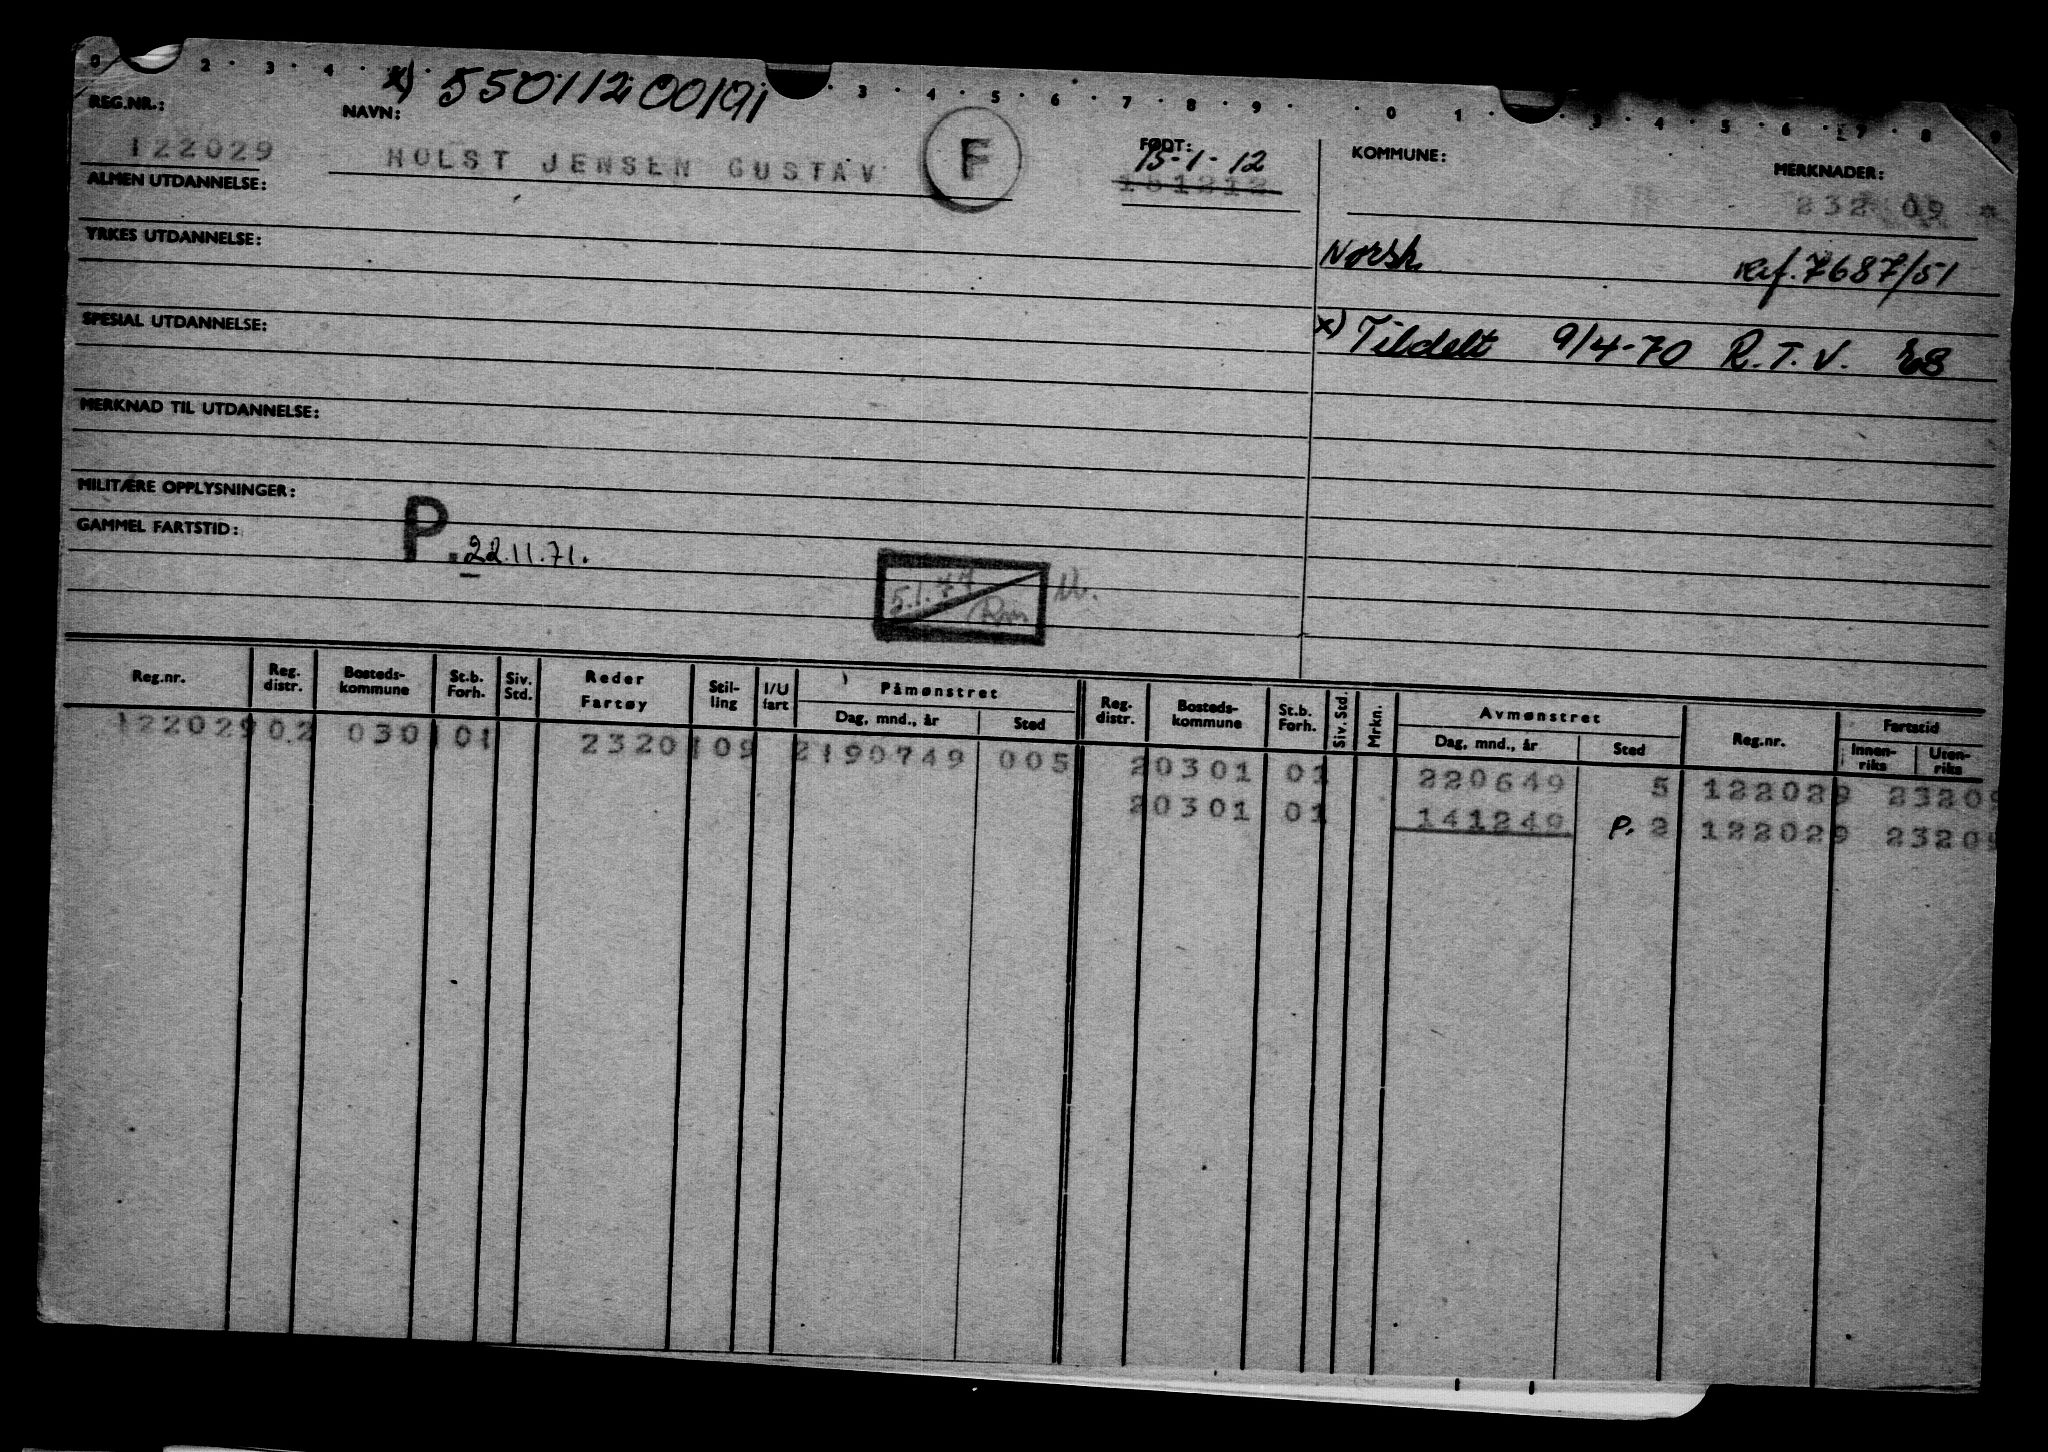 0 2 · 3 · 4 · · 3 · 4 · 5 · 6 · 7 · 8 · 9 · · 0 1 · · 3 · 4 · 5 · 6 · 7 · 8 9
x) 55011200191
REG.NR.: NAVN: FØDT: KOMMUNE: MERKNADER:
122029 HOLST JENSEN GUSTAV F 15-1-12
232 09 *
ALMEN UTDANNELSE:
YRKES UTDANNELSE:
Norsk Ref. 7687/51
SPESIAL UTDANNELSE:
x) Tildelt 9/4-70 R.T.V.
MERKNAD TIL UTDANNELSE:
MILITÆRE OPPLYSNINGER:
GAMMEL FARTSTID:
P. 22.11.71.
Reg.nr. Reg. distr. Bosteds-kommune St.b. Forh. Siv. Std. Reder Fartøy Stil-ling I/U fart Påmønstret Dag, mnd., år Sted Reg. distr. Bosteds-kommune St.b. Forh. Siv. Std. Mrkn. Avmønstret Dag, mnd., år Sted Reg.nr. Fartstid Innen-riks Uten-riks
122029 02 030 1 01 2320 109 2190749 005 20301 01 220649 5 122029 23209
20301 01 141249 P. 2 122029 23209